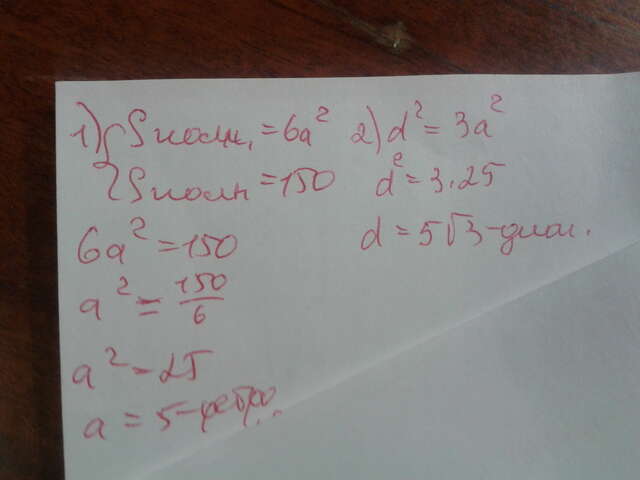 1) { Sполн. = 6a²
Sполн = 150
6a² = 150
a² = 150/6
a² = 25
a = 5 - ребро
2) d² = 3a²
d² = 3·25
d = 5√3 - диаг.